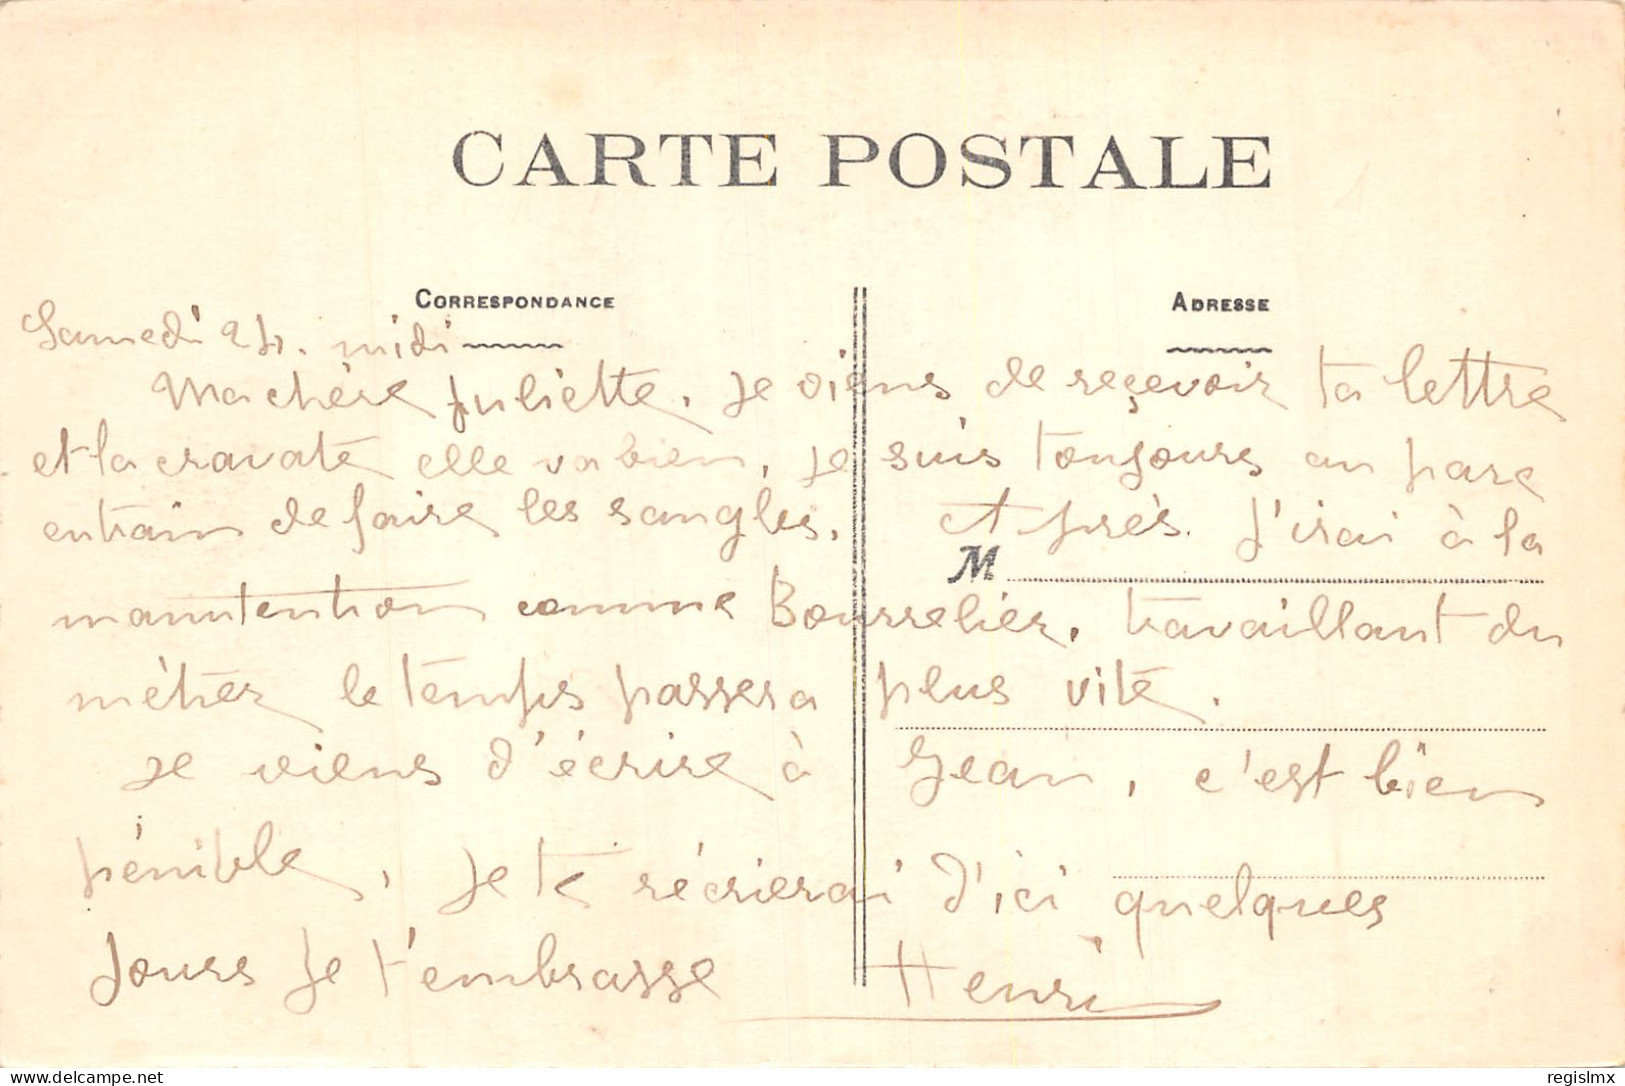 CARTE POSTALE
CORRESPONDANCE
ADRESSE
Samedi 24. midi
Ma chère Juliette, je viens de reçevoir ta lettre
et la cravate elle va bien, je suis toujours au parc
entrain de faire les sangles. et près. J'irai à la
M
manutention comme Bourrelier, travaillant du
métier le temps passera plus vite.
je viens d'écrire à Jean, c'est bien
pénible, je te récrierai d'ici quelques
jours je t'embrasse Henri
regislmx